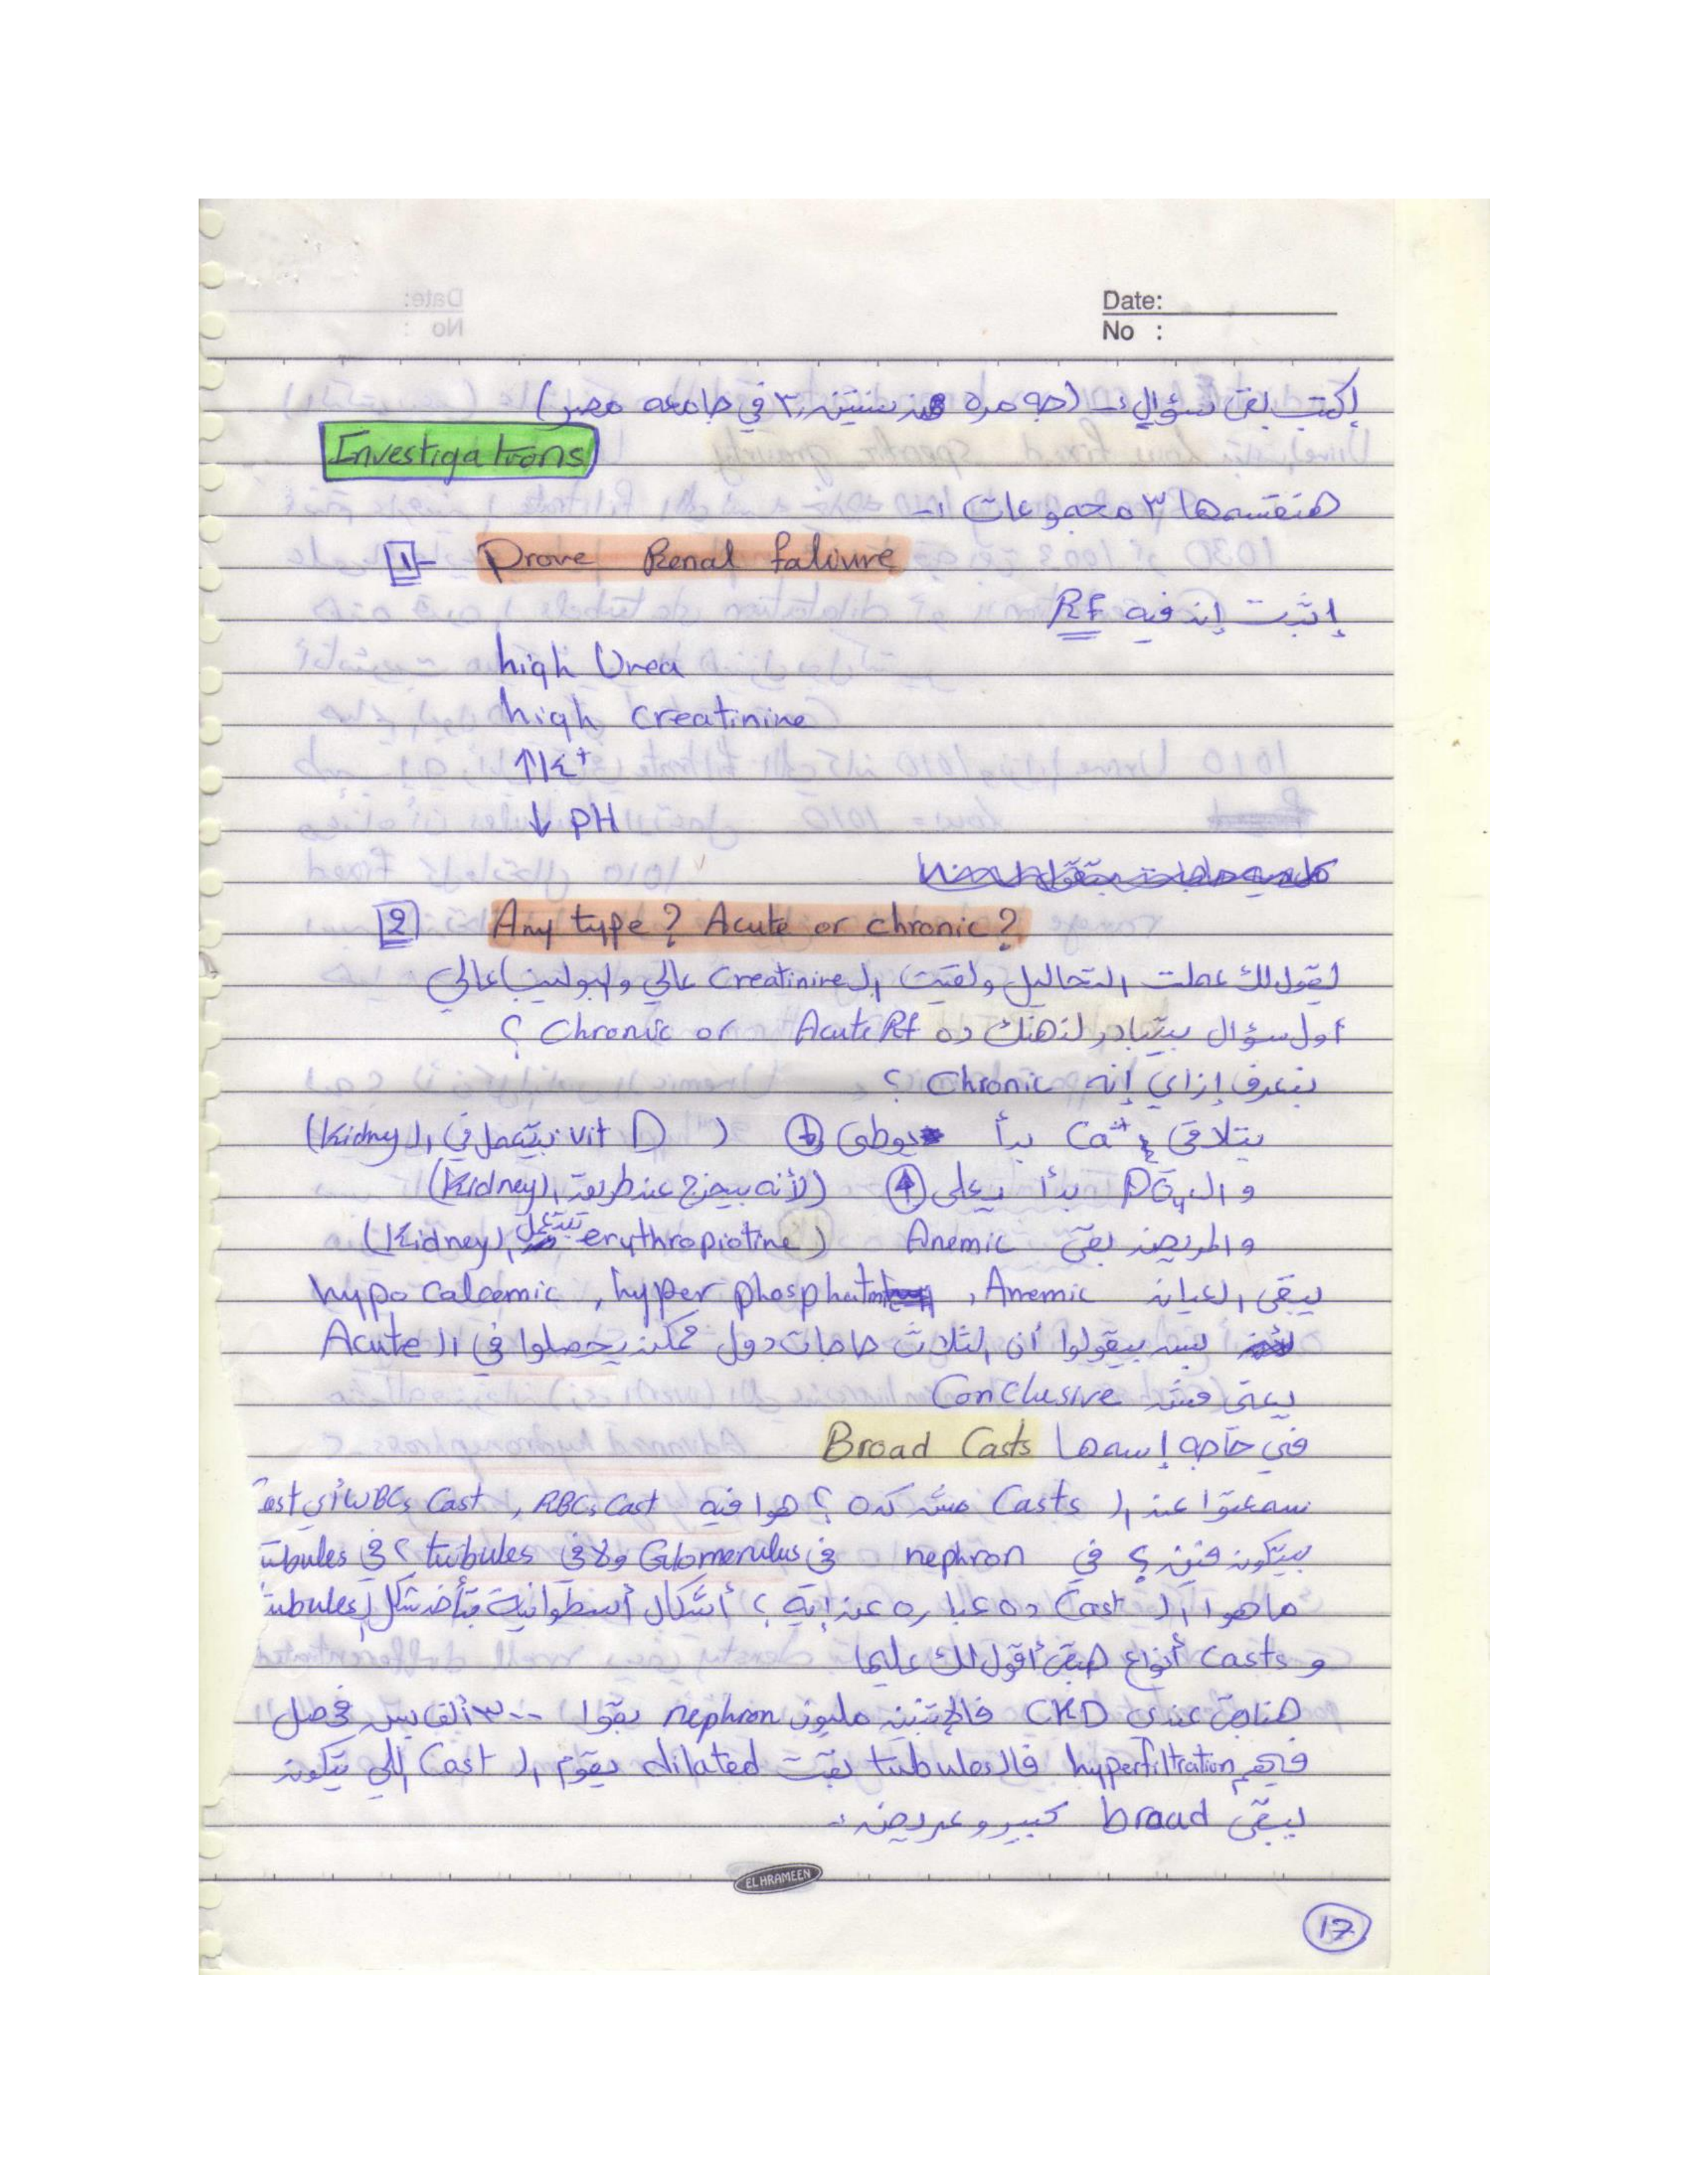 Date:
No :
إكتب بقى سؤال :- (جه مره من سنتين ٣ في جامعه مصر)
Investigations
هنقسمها ٣ مجموعات :-
1- Prove Renal faliure
إثبت إن فيه RF
high Urea
high creatinine
↑K+
↓ PH
2 Any type? Acute or chronic?
يقولك عملت التحاليل ولقيت الـ Creatinine عالي والبولينا عالي
أول سؤال بيتبادر لذهنك ده Acute Rf or Chronic ؟
بنعرف إزاي إنه Chronic ؟
بتلاقي Ca++ بدأ يوطى ↓ ( vit D بيتعمل في الـ Kidney)
و الـ PO4 بدأ يعلى ↑ (لأنه بيخرج عن طريق الـ Kidney)
والمريض بقى Anemic (erythropiotine بتتعمل الـ Kidney)
يبقى العيان Anemic , hyper phosphatm , hypo calcemic
بس بيقولوا أن الثلاث حاجات دول ممكن يحصلوا في الـ Acute
يعني مش Conclusive
في حاجه إسمها Broad Casts
سمعتوا عن الـ Casts مش كده ؟ هوا فيه RBCs Cast , WBCs Cast أي ast
بيتكون فين ؟ في nephron في Glomerulus ولا في tubules ؟ في ubules
ما هوا الـ Cast ده عباره عن إيه ؟ أشكال أسطوانية بتأخد شكل الـ ubules
و casts أنواع هبقى أقول لك عليها
هنا بقى عندي CKD فالإتنين مليون nephron بقوا ٣٠٠ ألف بس فحصل
فيهم hyperfiltration فالـ tubules بقت dilated يقوم الـ Cast اللي يتكون
يبقى broad كبير وعريض :-
EL HRAMEEN
17